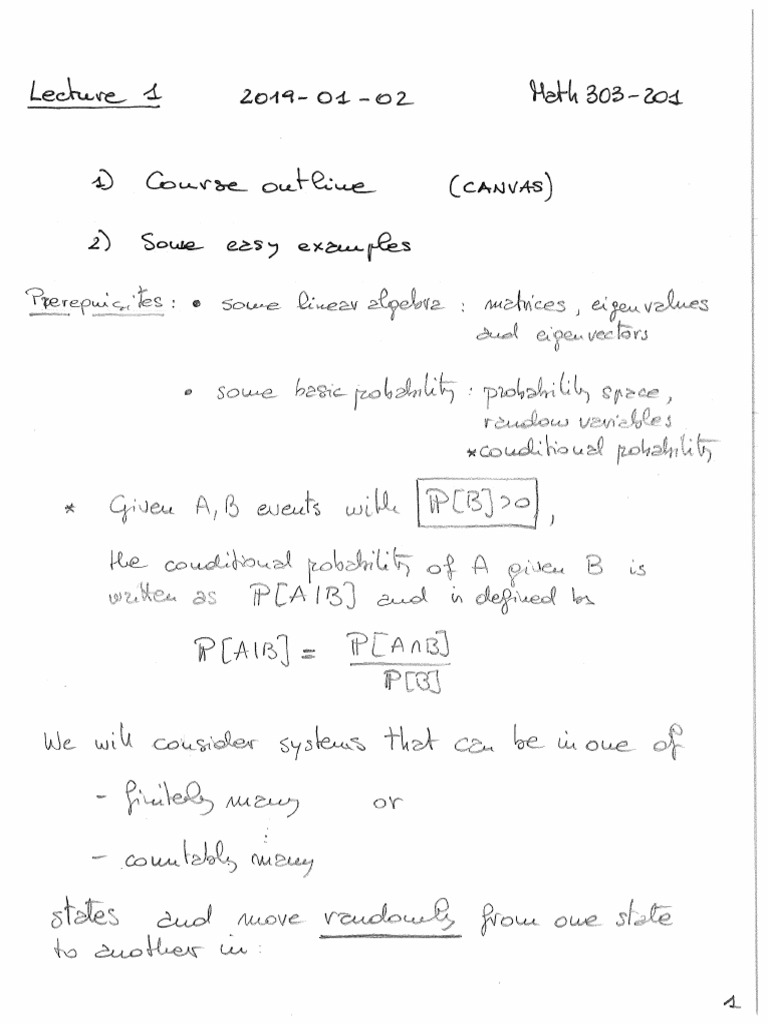 Lecture 1 2019-01-02 Math 303-201
1) Course outline (CANVAS)
2) Some easy examples
Prerequisites: • some linear algebra : matrices, eigenvalues
and eigenvectors
• some basic probability : probability space,
random variables
*conditional pobability
* Given A,B events with ℙ[B]>0,
the conditional pobability of A given B is
written as ℙ[A|B] and is defined by
ℙ[A|B] = ℙ[A∩B]
ℙ[B]
We will consider systems that can be in one of
- finitely many or
⋮
- countably many
states and move randomly from one state
to another in:
1